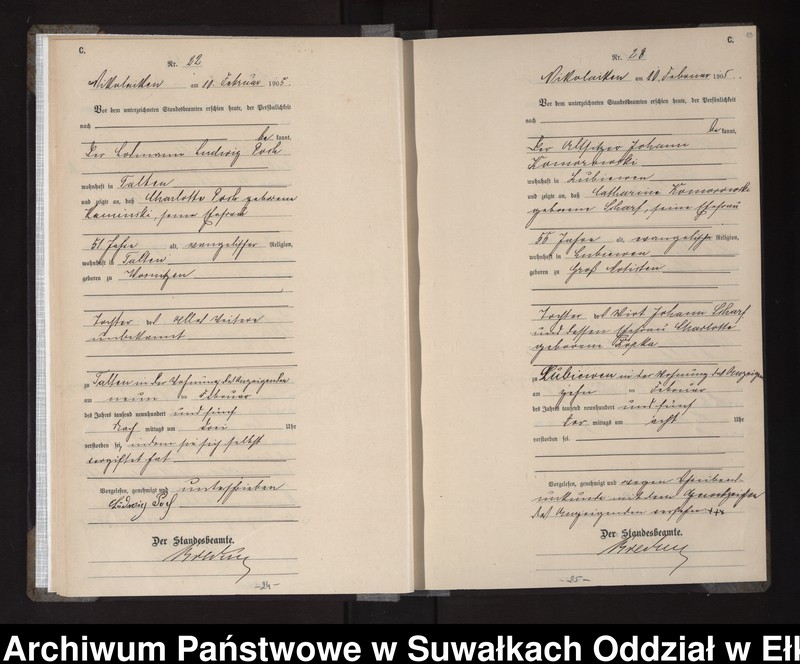 C.
Nr. 22
Nikolaiken am 10 Februar 1905.
Vor dem unterzeichneten Standesbeamten erschien heute, der Persönlichkeit
nach
be kannt,
Der Losmann Ludwig
wohnhaft in Talten
und zeigte an, daß Charlotte geborene
Kaminski, seine Ehefrau
51 Jahre alt, evangelischer Religion,
wohnhaft in Talten
geboren zu
Tochter des Alles weitere
unbekannt
zu Talten in der Wohnung des Anzeigenden
am neun ten Februar
des Jahres tausend neunhundert und fünf
Nach mittags um drei Uhr
verstorben sei, indem sie sich selbst
vergiftet hat
Vorgelesen, genehmigt und unterschrieben
Ludwig
Der Standesbeamte.
-24-
C.
Nr. 23
Nikolaiken am 10. Februar 1905.
Vor dem unterzeichneten Standesbeamten erschien heute, der Persönlichkeit
nach
be kannt,
Der Altsitzer Johann
Komorowski
wohnhaft in Lubiewen
und zeigte an, daß Catharine Komorowski
geborene Scharf, seine Ehefrau
55 Jahre alt, evangelischer Religion,
wohnhaft in Lubiewen
geboren zu Groß
Tochter des Wirt Johann Scharf
und dessen Ehefrau Charlotte
geborene
zu Lubiewen in der Wohnung des Anzeigen
am zehn ten Februar
des Jahres tausend neunhundert und fünf
Vor mittags um acht Uhr
verstorben sei.
Vorgelesen, genehmigt und wegen Schreibens
unkunde mit dem Handzeichen
des Anzeigenden versehen +++
Der Standesbeamte.
-25-
Archiwum Państwowe w Suwałkach Oddział w Eł